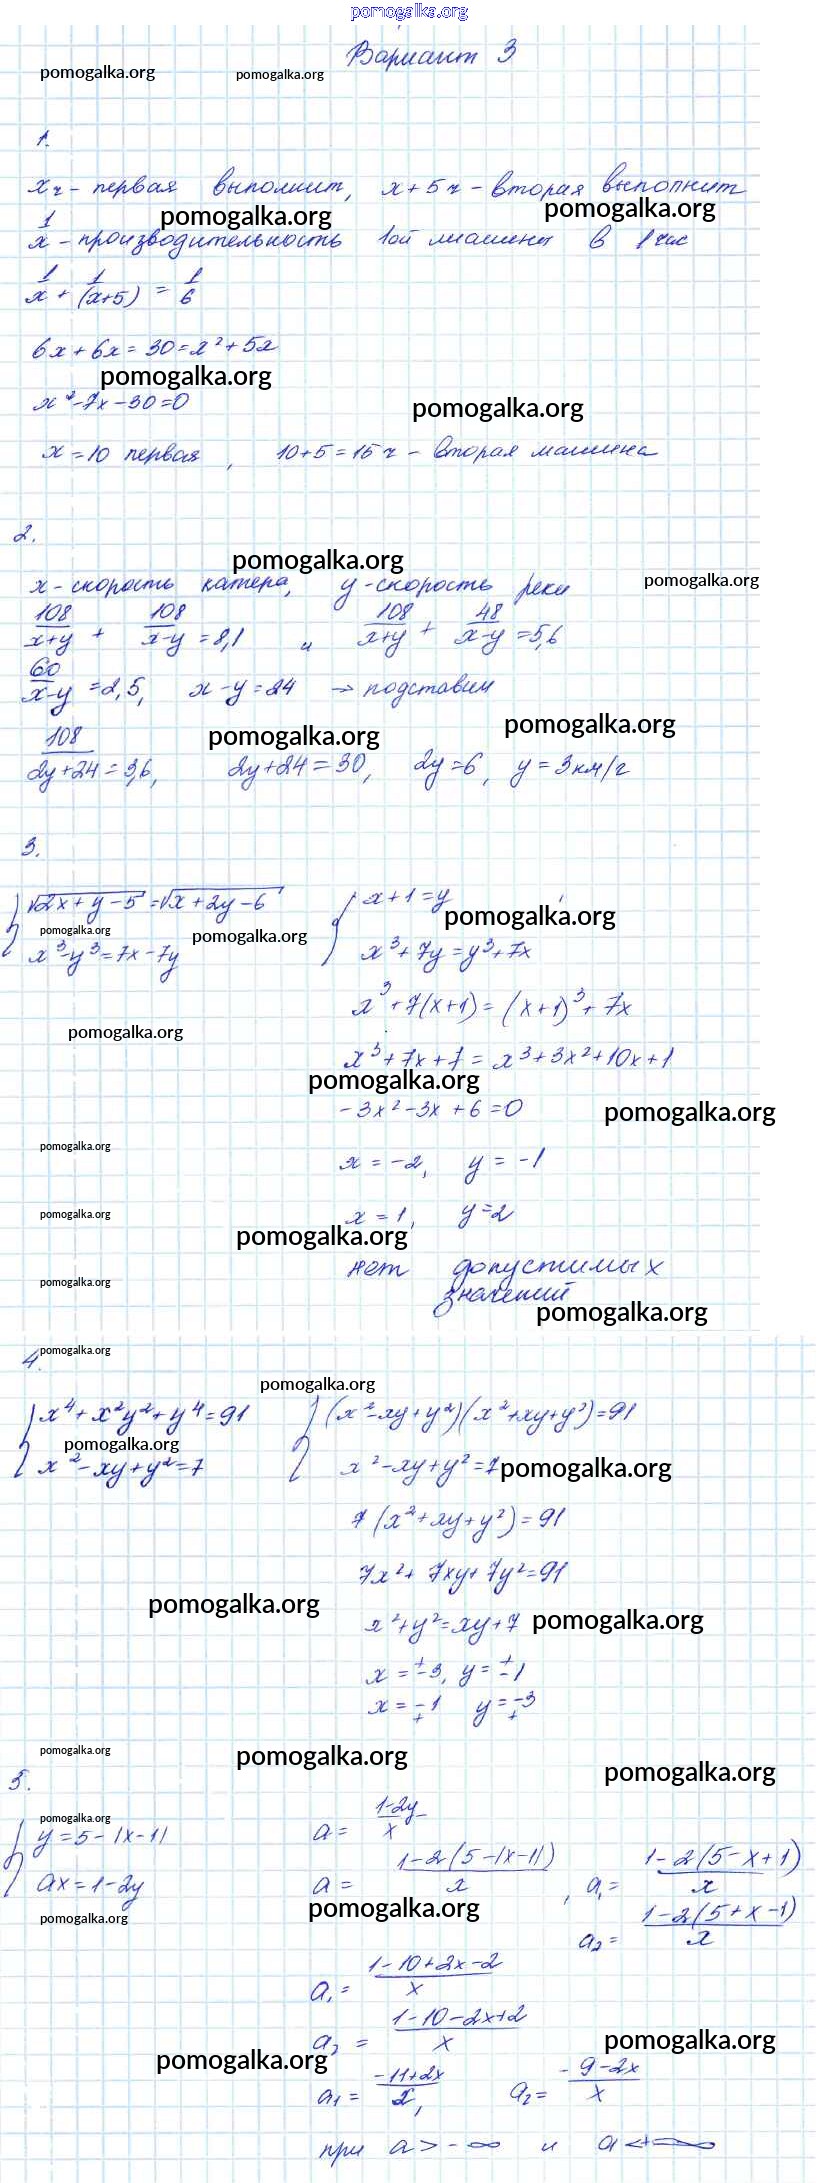 pomogalka.org
Вариант 3
pomogalka.org pomogalka.org
1.
x ч - первая выполнит, x+5 ч - вторая выполнит
pomogalka.org pomogalka.org
1/x - производительность 1ой машины в 1 час
1/x + 1/(x+5) = 1/6
6x + 6x = 30 = x² + 5x
pomogalka.org
x² - 7x - 30 = 0
pomogalka.org
x = 10 первая, 10+5 = 15 ч - вторая машина
2.
pomogalka.org
x - скорость катера, y - скорость реки
pomogalka.org
108/(x+y) + 108/(x-y) = 8,1 и 108/(x+y) + 48/(x-y) = 5,6
60/(x-y) = 2,5, x - y = 24 → подставим
pomogalka.org pomogalka.org
108/(2y+24) = 3,6, 2y+24 = 30, 2y = 6, y = 3 км/г
3.
{ √(2x+y-5) = √(x+2y-6) { x+1 = y
pomogalka.org pomogalka.org pomogalka.org
x³ - y³ = 7x - 7y x³ + 7y = y³ + 7x
x³ + 7(x+1) = (x+1)³ + 7x
pomogalka.org
x³ + 7x + 7 = x³ + 3x² + 10x + 1
pomogalka.org
-3x² - 3x + 6 = 0
pomogalka.org
pomogalka.org
x = -2, y = -1
pomogalka.org
x = 1, y = 2
pomogalka.org
нет допустимых
pomogalka.org
значений
pomogalka.org
4.
pomogalka.org
pomogalka.org
{ x⁴ + x²y² + y⁴ = 91 { (x² - xy + y²)(x² + xy + y²) = 91
pomogalka.org
x² - xy + y² = 7 x² - xy + y² = 7
pomogalka.org
7(x² + xy + y²) = 91
7x² + 7xy + 7y² = 91
pomogalka.org
x² + y² = xy + 7
pomogalka.org
x = ±3, y = ±1
x = ∓1 y = ∓3
pomogalka.org pomogalka.org
pomogalka.org
5.
pomogalka.org
{ y = 5 - |x-1| a = (1-2y)/x
ax = 1-2y a = (1-2(5-|x-1|))/x, a₁ = (1-2(5-x+1))/x
pomogalka.org pomogalka.org
a₂ = (1-2(5+x-1))/x
a₁ = (1-10+2x-2)/x
a₂ = (1-10-2x+2)/x
pomogalka.org pomogalka.org
a₁ = (-11+2x)/x, a₂ = (-9-2x)/x
при a > -∞ и a < +∞